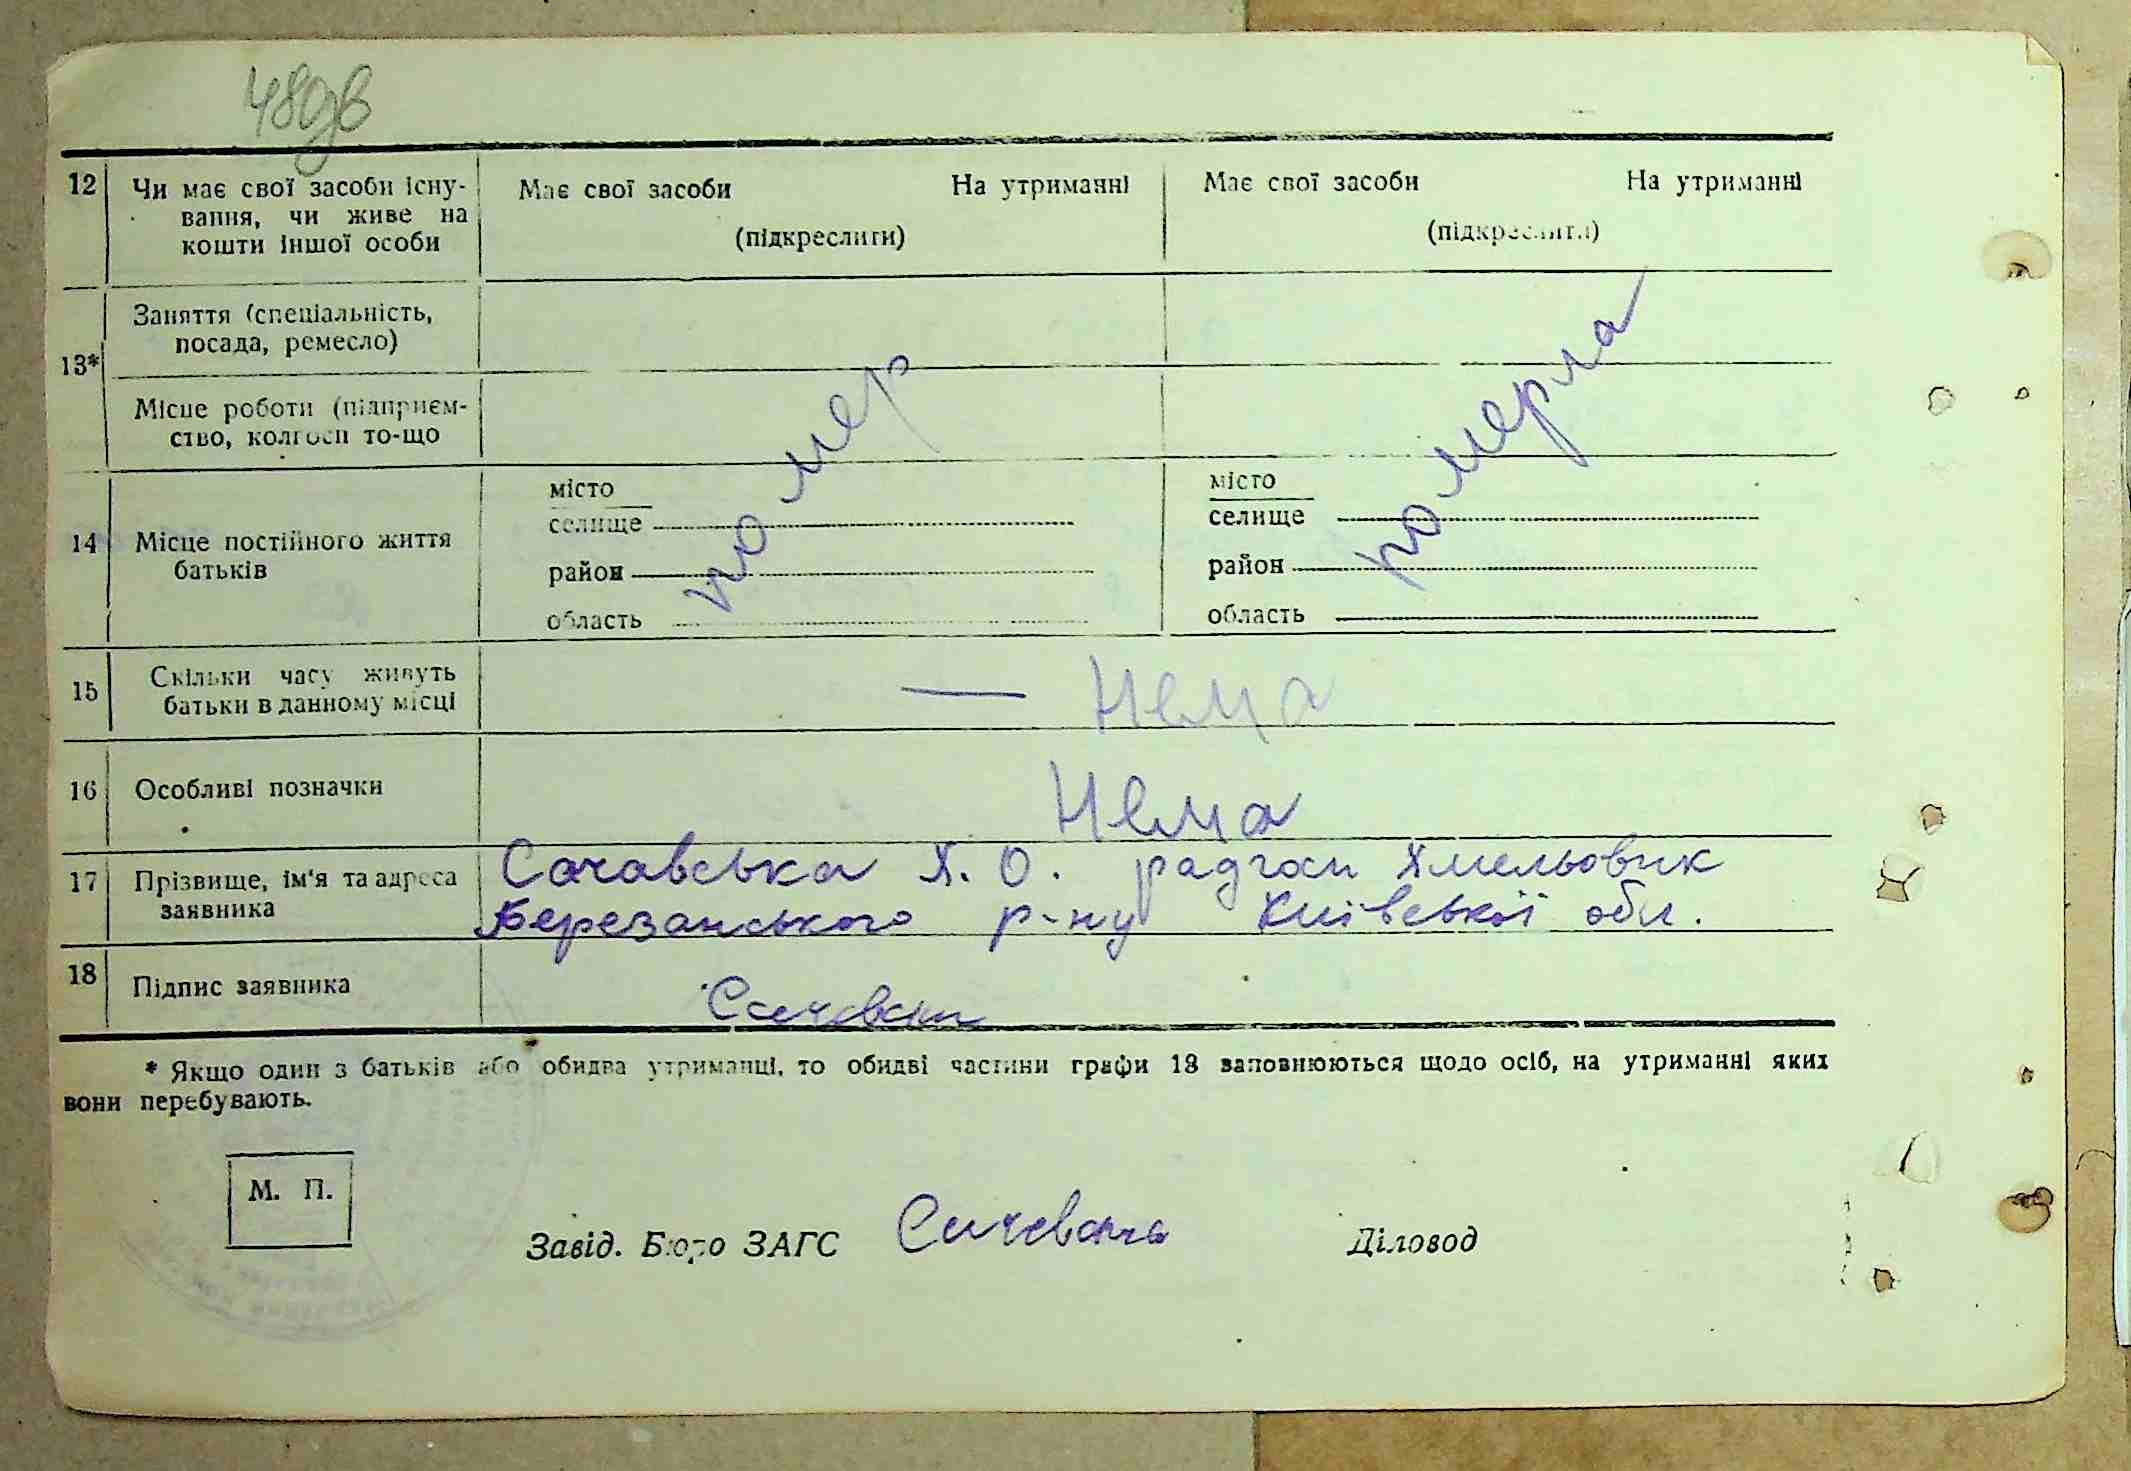 48дв
12 Чи має свої засоби існу- Має свої засоби На утриманні Має свої засоби На утриманні
вання, чи живе на (підкреслити) (підкреслити)
кошти іншої особи
13* Заняття (спеціальність,
посада, ремесло)
Місце роботи (підприєм-
ство, колгосп то-що
помер
померла
14 Місце постійного життя
батьків
місто
селище
район
область
місто
селище
район
область
15 Скільки часу живуть — Нема
батьки в данному місці
16 Особливі позначки Нема
17 Прізвище, ім'я та адреса Сачавська Х. О. радгосп Хмельовик
заявника Березанського р-ну Київської обл.
18 Підпис заявника
* Якщо один з батьків або обидва утриманці, то обидві частини графи 13 заповнюються щодо осіб, на утриманні яких
вони перебувають.
М. П.
Завід. Бюро ЗАГС Діловод